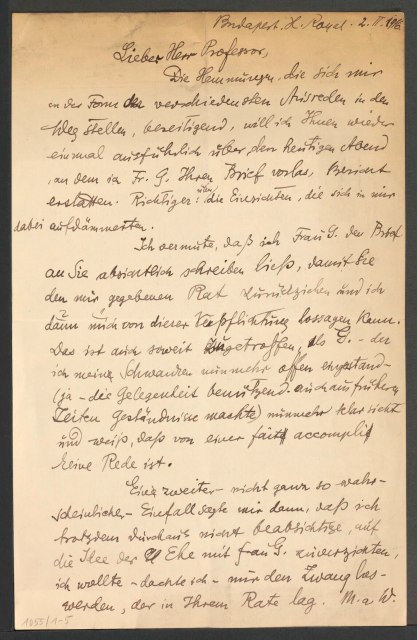 Budapest, H. Royal. 2. II. 1916.
Lieber Herr Professor,
Die Hemmungen, die sich mir
in der Form der verschiedensten Ausreden in den
Weg stellen, beseitigend, will ich Ihnen wieder
einmal ausführlich über den heutigen Abend
, an dem ich Fr. G. Ihren Brief vorlas, Bericht
erstatten. Richtiger: über die Einsichten, die sich in mir
dabei aufdämmerten.
Ich vermute, daß ich Frau G. den Brief
an Sie absichtlich schreiben ließ, damit Sie
den mir gegebenen Rat zurückziehen und ich
dann mich von dieser Verpflichtung lossagen kann.
Das ist auch soweit zugetroffen, als G. – der
ich mein Schwanken nunmehr offen eingestand –
(ja – die Gelegenheit benützend – auch aus frühern
Zeiten Geständnisse machte) nunmehr klar sieht
und weiß, daß von einer fait accompli
keine Rede ist.
Eine zweiter – nicht ganz so wahr-
scheinlicher – Einfall sagte mir dann, daß ich
trotzdem durchaus nicht beabsichtige, auf
die Idee der Ehe mit Frau G. zu verzichten,
ich wollte – dachte ich – nur den Zwang los-
werden, der in Ihrem Rate lag. M. a. W.
1055/1-5